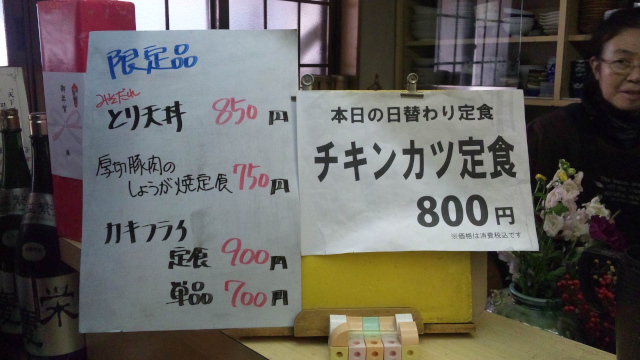 限定品
みそだれ
とり天丼 850円
厚切豚肉の
しょうが焼定食 750円
カキフライ
定食 900円
単品 700円
本日の日替わり定食
チキンカツ定食
800円
※価格は消費税込です
栄